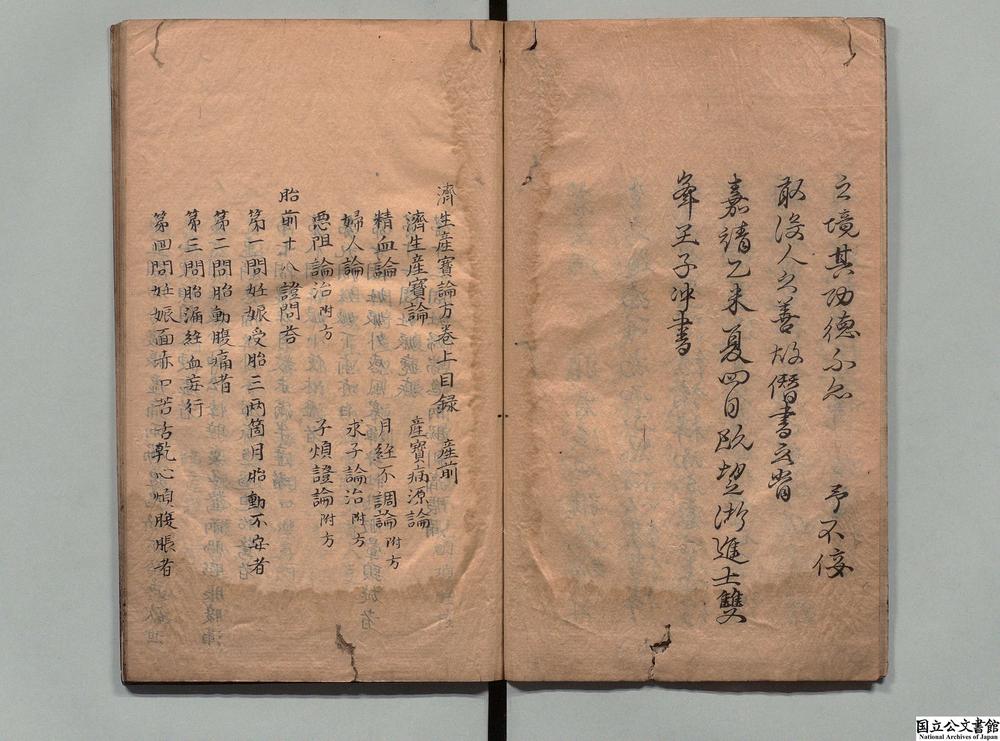 之境其功德不忘 予不佞
敢沒人之善故僭書之
嘉靖乙未夏四日既望浙進士雙
峯王子冲書
濟生產寶論方卷上目録 產前
濟生產寶論 產寶病源論
精血論 月經不調論附方
婦人論 求子論治附方
惡阻論治附方 子煩證論附方
胎前十八證問荅
第一問妊娠受胎三兩箇月胎動不安者
第二問胎動腹痛者
第三問胎漏經血妄行
第四問妊娠面赤口苦舌乾心煩腹脹者
国立公文書館
National Archives of Japan